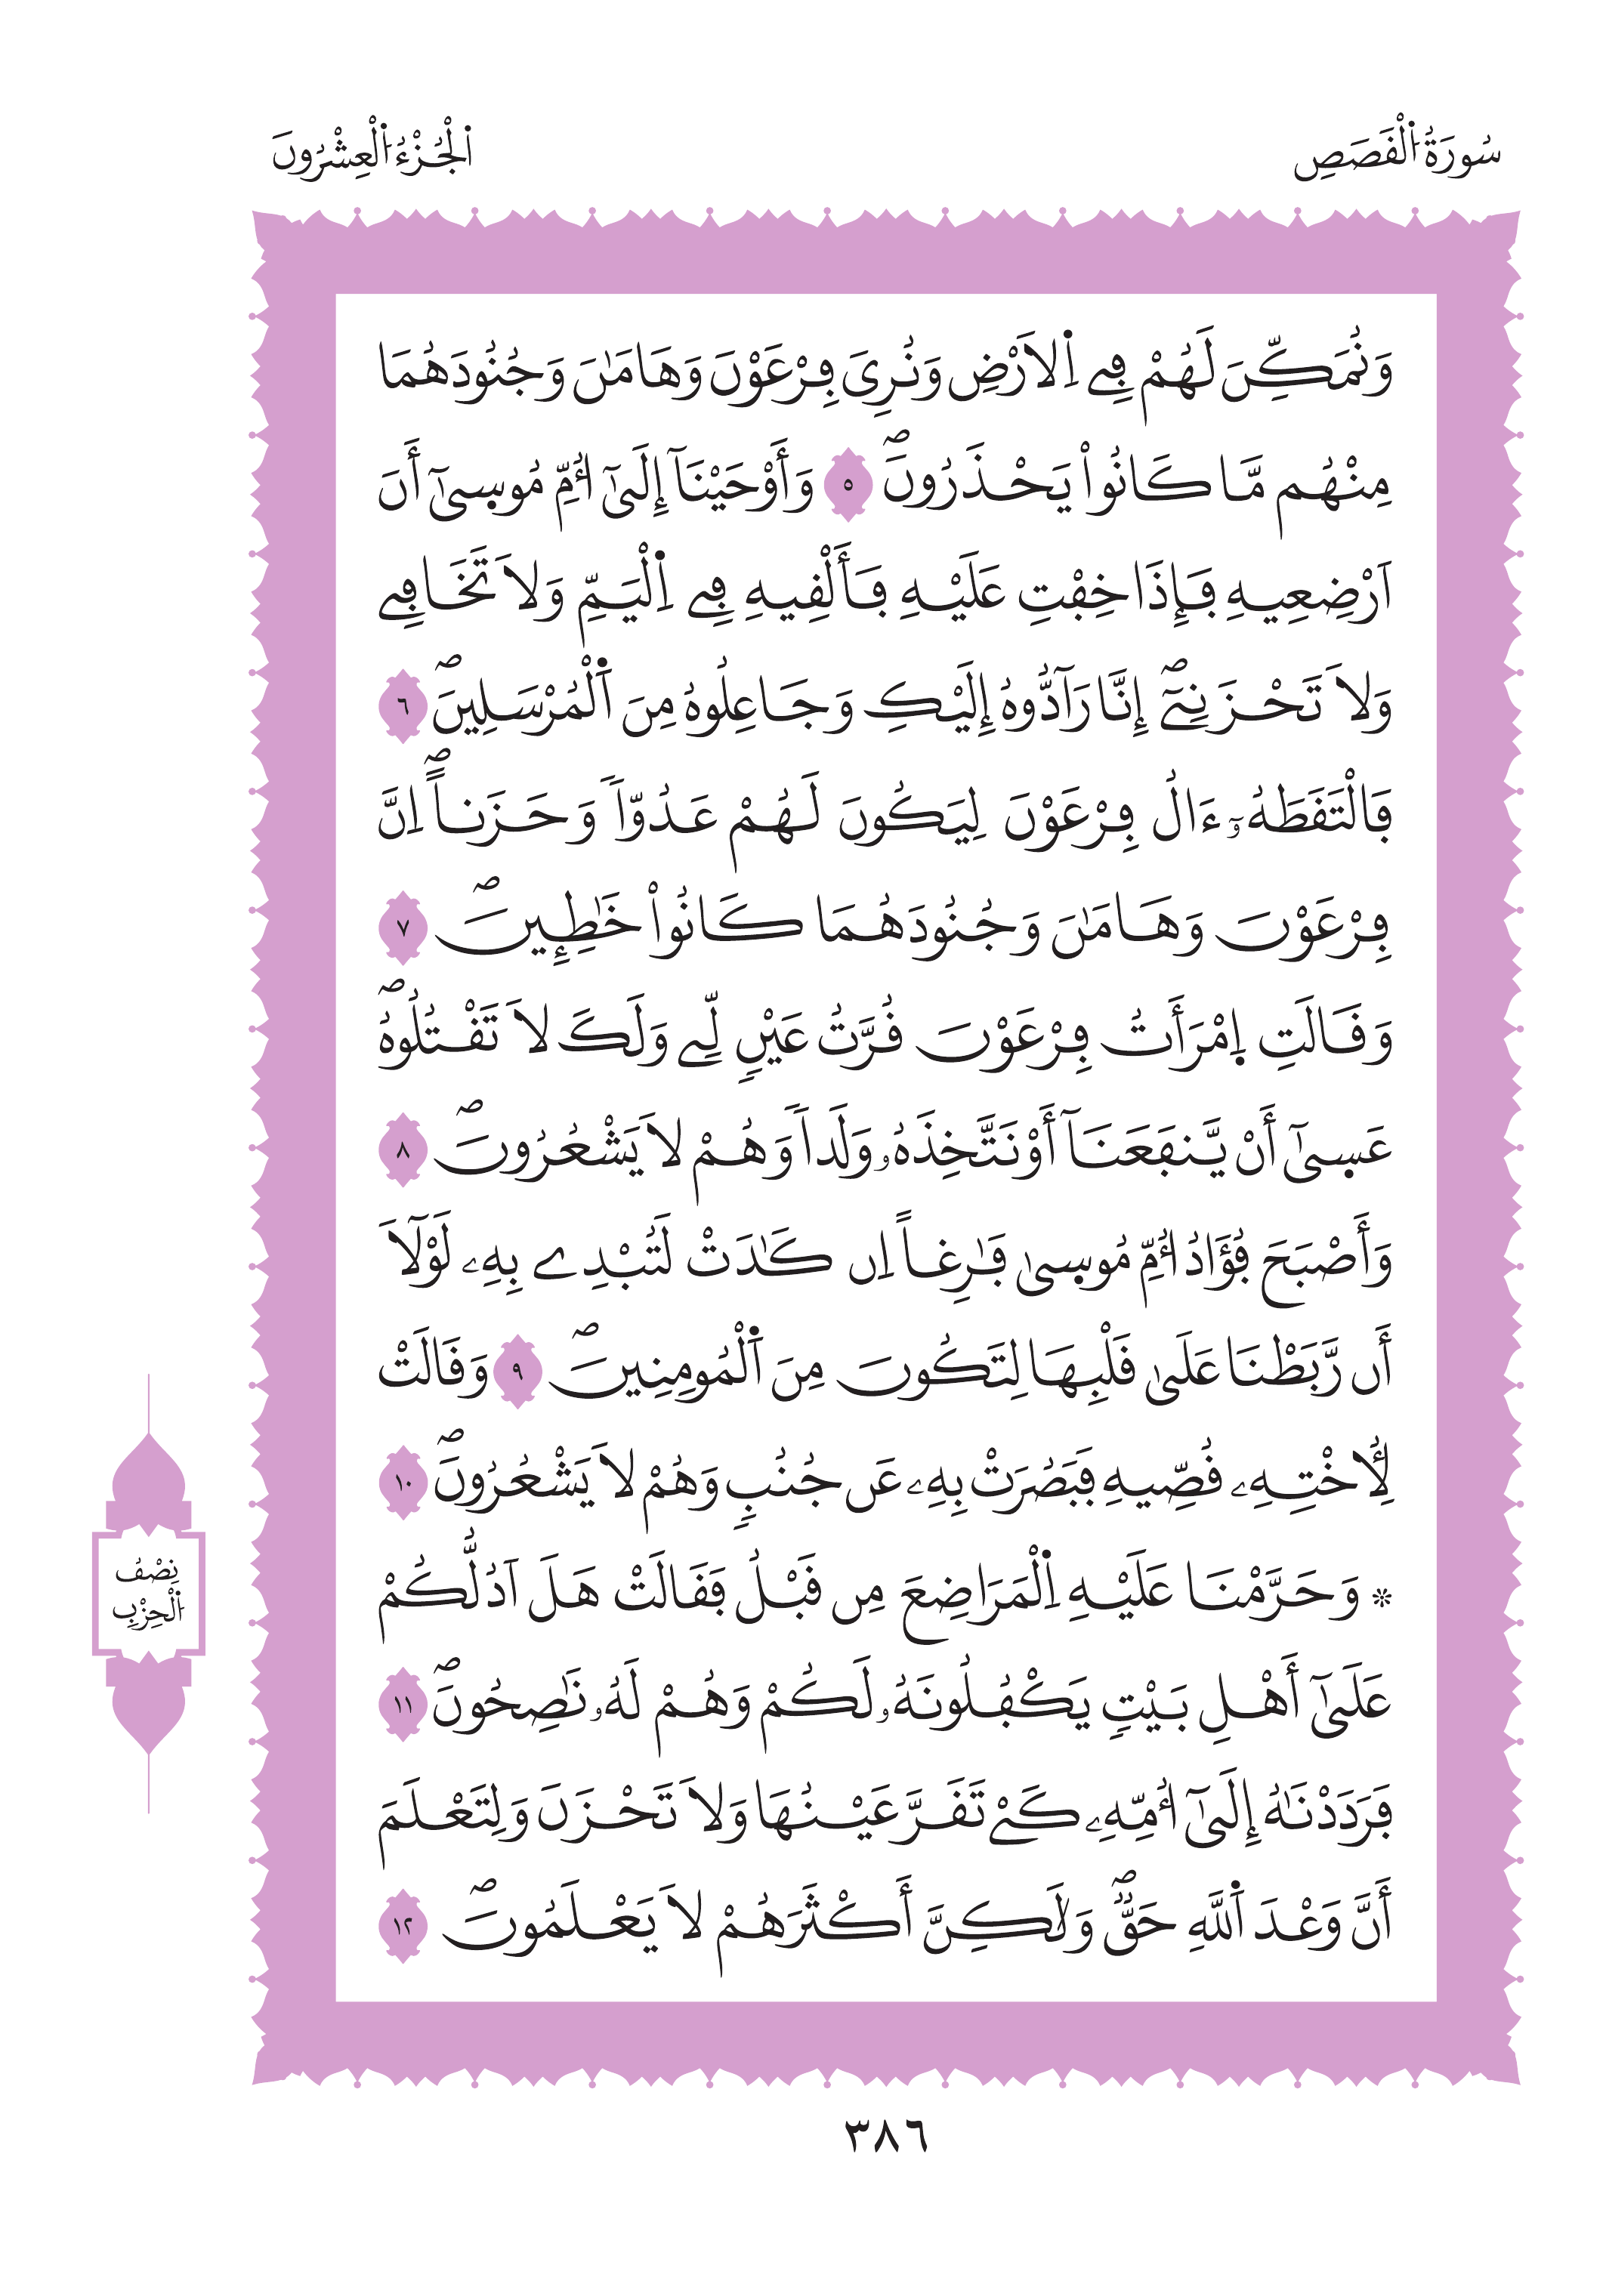 سُورَةُ اُ۬لْقَصَصِ
اَ۬لْجُزْءُ اُ۬لْعِشْرُونَ
وَنُمَكِّنَ لَهُمْ فِے اِ۬لَارْضِ وَنُرِيَ فِرْعَوْنَ وَهَامَٰنَ وَجُنُودَهُمَا
مِنْهُم مَّا كَانُواْ يَحْذَرُونَۖ ٥ وَأَوْحَيْنَآ إِلَيٰٓ أُمِّ مُوسۭيٰٓ أَنَ
اَرْضِعِيهِ فَإِذَا خِفْتِ عَلَيْهِ فَأَلْقِيهِ فِے اِ۬لْيَمِّ وَلَا تَخَافِے
وَلَا تَحْزَنِےٓۖ إِنَّا رَآدُّوهُ إِلَيْكِ وَجَاعِلُوهُ مِنَ اَ۬لْمُرْسَلِينَۖ ٦
فَالْتَقَطَهُۥٓ ءَالُ فِرْعَوْنَ لِيَكُونَ لَهُمْ عَدُوّاٗ وَحَزَناًۖ اِنَّ
فِرْعَوْنَ وَهَامَٰنَ وَجُنُودَهُمَا كَانُواْ خَٰطِـِٕينَۖ ٧
وَقَالَتِ اِ۪مْرَأَتُ فِرْعَوْنَ قُرَّتُ عَيْنٖ لِّے وَلَكَ لَا تَقْتُلُوهُۖ
عَسۭيٰٓ أَنْ يَّنفَعَنَآ أَوْ نَتَّخِذَهُۥ وَلَداٗ وَهُمْ لَا يَشْعُرُونَۖ ٨
وَأَصْبَحَ فُؤَادُ أُمِّ مُوسۭيٰ فَٰرِغاً اِن كَٰدَتْ لَتُبْدِے بِهِۦ لَوْلَآ
أَن رَّبَطْنَا عَلَيٰ قَلْبِهَا لِتَكُونَ مِنَ اَ۬لْمُومِنِينَۖ ٩ وَقَالَتْ
لِأُخْتِهِۦ قُصِّيهِ فَبَصُرَتْ بِهِۦ عَن جُنُبٖ وَهُمْ لَا يَشْعُرُونَۖ ١٠
۞ وَحَرَّمْنَا عَلَيْهِ اِ۬لْمَرَاضِعَ مِن قَبْلُ فَقَالَتْ هَلَ اَدُلُّكُمْ
عَلَيٰٓ أَهْلِ بَيْتٖ يَكْفُلُونَهُۥ لَكُمْ وَهُمْ لَهُۥ نَٰصِحُونَۖ ١١
فَرَدَدْنَٰهُ إِلَيٰٓ أُمِّهِۦ كَےْ تَقَرَّ عَيْنُهَا وَلَا تَحْزَنَ وَلِتَعْلَمَ
أَنَّ وَعْدَ اَ۬للَّهِ حَقّٞۖ وَلَٰكِنَّ أَكْثَرَهُمْ لَا يَعْلَمُونَۖ ١٢
نِصْفُ
اُ۬لْحِزْبِ
٣٨٦